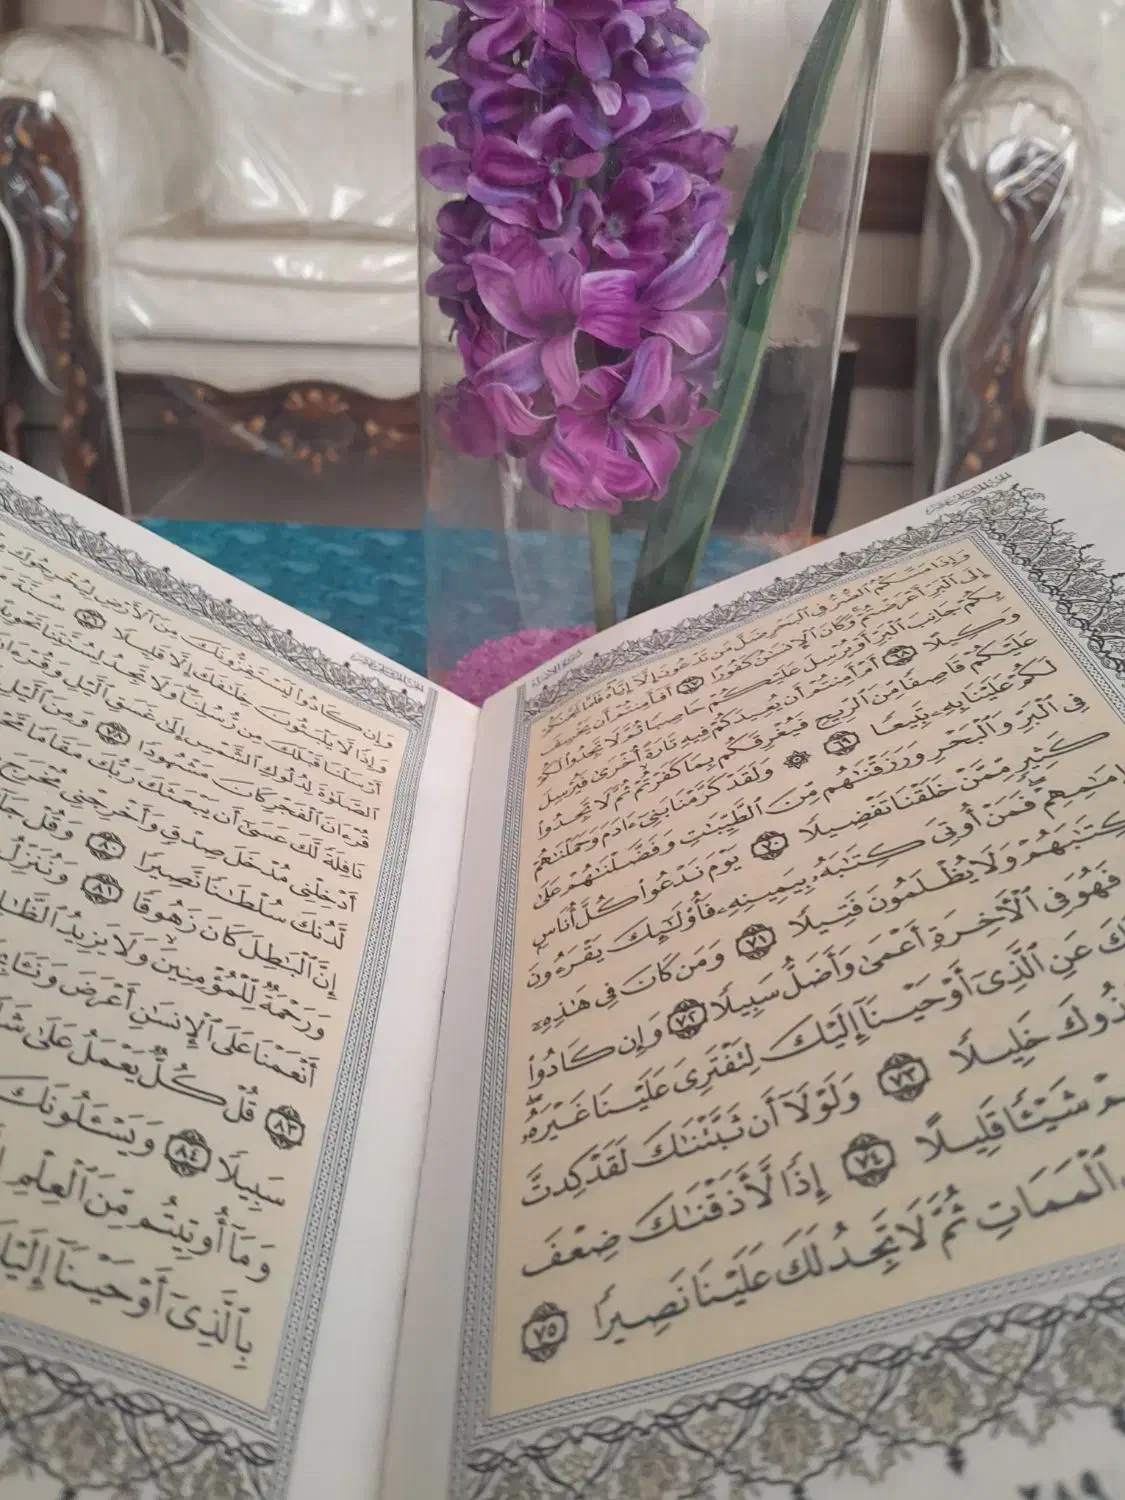 وَإِذَا مَسَّكُمُ ٱلضُّرُّ فِي ٱلۡبَحۡرِ ضَلَّ مَن تَدۡعُونَ إِلَّآ إِيَّاهُۖ فَلَمَّا نَجَّىٰكُمۡ
إِلَى ٱلۡبَرِّ أَعۡرَضۡتُمۡۚ وَكَانَ ٱلۡإِنسَٰنُ كَفُورًا ٦٧ أَفَأَمِنتُمۡ أَن يَخۡسِفَ
بِكُمۡ جَانِبَ ٱلۡبَرِّ أَوۡ يُرۡسِلَ عَلَيۡكُمۡ حَاصِبٗا ثُمَّ لَا تَجِدُواْ لَكُمۡ
وَكِيلًا ٦٨ أَمۡ أَمِنتُمۡ أَن يُعِيدَكُمۡ فِيهِ تَارَةً أُخۡرَىٰ فَيُرۡسِلَ
عَلَيۡكُمۡ قَاصِفٗا مِّنَ ٱلرِّيحِ فَيُغۡرِقَكُم بِمَا كَفَرۡتُمۡ ثُمَّ لَا تَجِدُواْ
لَكُمۡ عَلَيۡنَا بِهِۦ تَبِيعٗا ٦٩ ۞ وَلَقَدۡ كَرَّمۡنَا بَنِيٓ ءَادَمَ وَحَمَلۡنَٰهُمۡ
فِي ٱلۡبَرِّ وَٱلۡبَحۡرِ وَرَزَقۡنَٰهُم مِّنَ ٱلطَّيِّبَٰتِ وَفَضَّلۡنَٰهُمۡ عَلَىٰ
كَثِيرٖ مِّمَّنۡ خَلَقۡنَا تَفۡضِيلٗا ٧٠ يَوۡمَ نَدۡعُواْ كُلَّ أُنَاسِۭ
بِإِمَٰمِهِمۡۖ فَمَنۡ أُوتِيَ كِتَٰبَهُۥ بِيَمِينِهِۦ فَأُوْلَٰٓئِكَ يَقۡرَءُونَ
كِتَٰبَهُمۡ وَلَا يُظۡلَمُونَ فَتِيلٗا ٧١ وَمَن كَانَ فِي هَٰذِهِۦٓ
فَهُوَ فِي ٱلۡأٓخِرَةِ أَعۡمَىٰ وَأَضَلُّ سَبِيلٗا ٧٢ وَإِن كَادُواْ
عَنِ ٱلَّذِيٓ أَوۡحَيۡنَآ إِلَيۡكَ لِتَفۡتَرِيَ عَلَيۡنَا غَيۡرَهُۥۖ
خَلِيلٗا ٧٣ وَلَوۡلَآ أَن ثَبَّتۡنَٰكَ لَقَدۡ كِدتَّ
شَيۡـٔٗا قَلِيلًا ٧٤ إِذٗا لَّأَذَقۡنَٰكَ ضِعۡفَ
ٱلۡمَمَاتِ ثُمَّ لَا تَجِدُ لَكَ عَلَيۡنَا نَصِيرٗا ٧٥
٢٨٩
وَإِن كَادُواْ لَيَسۡتَفِزُّونَكَ مِنَ ٱلۡأَرۡضِ لِيُخۡرِجُوكَ
وَإِذٗا لَّا يَلۡبَثُونَ خِلَٰفَكَ إِلَّا قَلِيلٗا ٧٦ سُنَّةَ
أَرۡسَلۡنَا قَبۡلَكَ مِن رُّسُلِنَاۖ وَلَا تَجِدُ لِسُنَّتِنَا تَحۡوِيلًا
ٱلصَّلَوٰةَ لِدُلُوكِ ٱلشَّمۡسِ إِلَىٰ غَسَقِ ٱلَّيۡلِ وَقُرۡءَانَ
قُرۡءَانَ ٱلۡفَجۡرِ كَانَ مَشۡهُودٗا ٧٨ وَمِنَ ٱلَّيۡلِ
نَافِلَةٗ لَّكَ عَسَىٰٓ أَن يَبۡعَثَكَ رَبُّكَ مَقَامٗا
أَدۡخِلۡنِي مُدۡخَلَ صِدۡقٖ وَأَخۡرِجۡنِي مُخۡرَجَ
لَّدُنكَ سُلۡطَٰنٗا نَّصِيرٗا ٨٠ وَقُلۡ جَآءَ
إِنَّ ٱلۡبَٰطِلَ كَانَ زَهُوقٗا ٨١ وَنُنَزِّلُ
وَرَحۡمَةٞ لِّلۡمُؤۡمِنِينَ وَلَا يَزِيدُ ٱلظَّٰلِمِينَ
أَنۡعَمۡنَا عَلَى ٱلۡإِنسَٰنِ أَعۡرَضَ وَنَـَٔا
٨٣ قُلۡ كُلّٞ يَعۡمَلُ عَلَىٰ
سَبِيلٗا ٨٤ وَيَسۡـَٔلُونَكَ
وَمَآ أُوتِيتُم مِّنَ ٱلۡعِلۡمِ
بِٱلَّذِيٓ أَوۡحَيۡنَآ إِلَيۡكَ